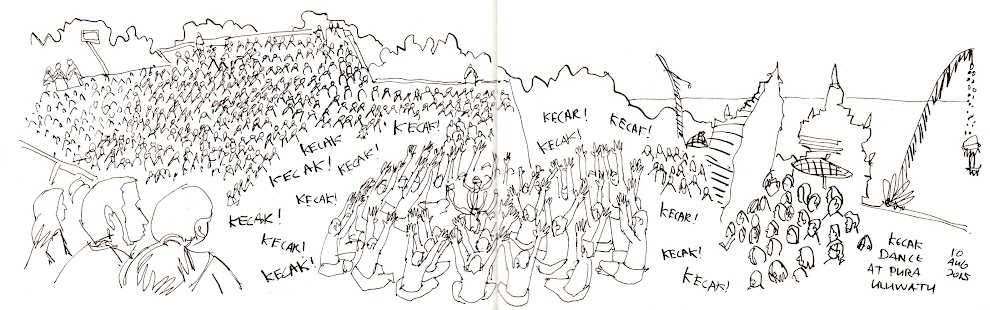 KECAK!
KECAK
KECAK!
KECAK!
KECAK!
KECAK!
KECAK!
KECAK!
KECAK!
KECAK!
KECAK!
KECAK!
KECAK!
KECAK!
KECAK
DANCE
AT PURA
ULUWATU
10
AUG
2015